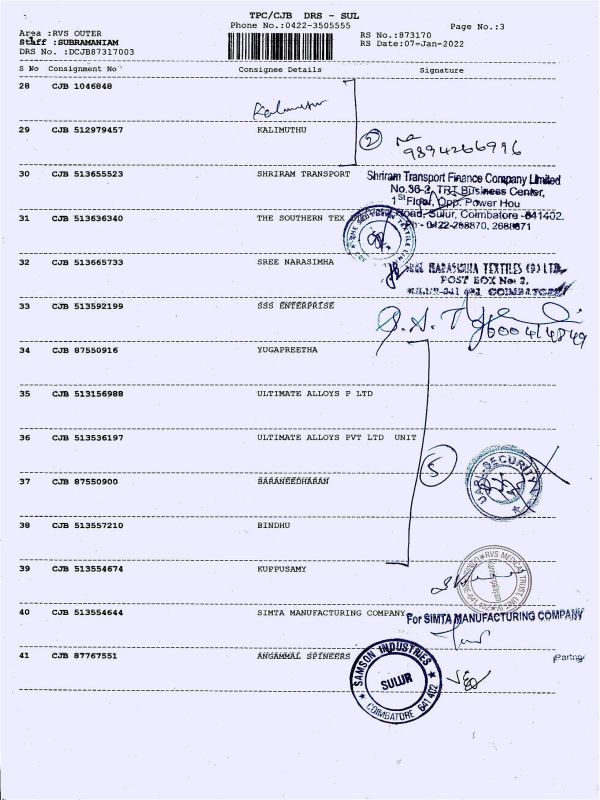 TPC/CJB DRS - SUL
Phone No.:0422-3505555 Page No.:3
Area :RVS OUTER RS No.:873170
Staff :SUBRAMANIAM RS Date:07-Jan-2022
DRS No. :DCJB87317003
S No Consignment No Consignee Details Signature
28 CJB 1046848
Kalimuthu
29 CJB 512979457 KALIMUTHU
2
9894266996
30 CJB 513655523 SHRIRAM TRANSPORT
Shriram Transport Finance Company Limited
No.36-2, TRT Business Center,
1st Floor, Opp. Power Hou
Road, Sulur, Coimbatore -641402.
31 CJB 513636340 THE SOUTHERN TEX
32 CJB 513665733 SREE NARASIMHA
SREE NARASIMHA TEXTILES (P) LTD.,
POST BOX No: 2,
SULUR-641 402, COIMBATORE
33 CJB 513592199 SSS ENTERPRISE
34 CJB 87550916 YUGAPREETHA
35 CJB 513156988 ULTIMATE ALLOYS P LTD
36 CJB 513536197 ULTIMATE ALLOYS PVT LTD UNIT
5
UAPL-SECURITY
37 CJB 87550900 BARANEEDHARAN
38 CJB 513557210 BINDHU
39 CJB 513554674 KUPPUSAMY
RVS MEDICAL TRUST
40 CJB 513554644 SIMTA MANUFACTURING COMPANY
For SIMTA MANUFACTURING COMPANY
Partner
41 CJB 87767551 ANGAMMAL SPINEERS
SAMSON INDUSTRIES
SULUR
COIMBATORE 641 402